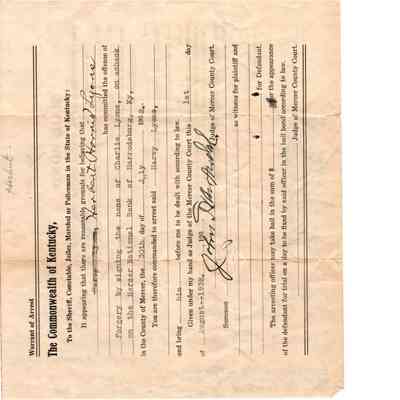 Warrant of Arrest
The Commonwealth of Kentucky,
To the Sheriff, Constable, Jailer, Marshal or Policeman in the State of Kentucky:
It appearing that there are reasonable grounds for believing that
Harvey Lyons Herbert Harris Lyons
has committed the offense of
Forgery by signing the name of Charlie Lyons, on a check
on the Mercer National Bank of Harrodsburg, Ky,
in the County of Mercer, the 30th day of July 1932,
You are therefore commanded to arrest said Harvey Lyons,
and bring him before me to be dealt with according to law.
Given under my hand as Judge of the Mercer County Court this 1st day
of August--1932. 190
Judge of Mercer County Court.
Summons as witness for plaintiff and
for Defendant.
The arresting officer may take bail in the sum of $ for the appearance
of the defendant for trial on a day to be fixed by said officer in the bail bond according to law.
Judge of Mercer County Court.